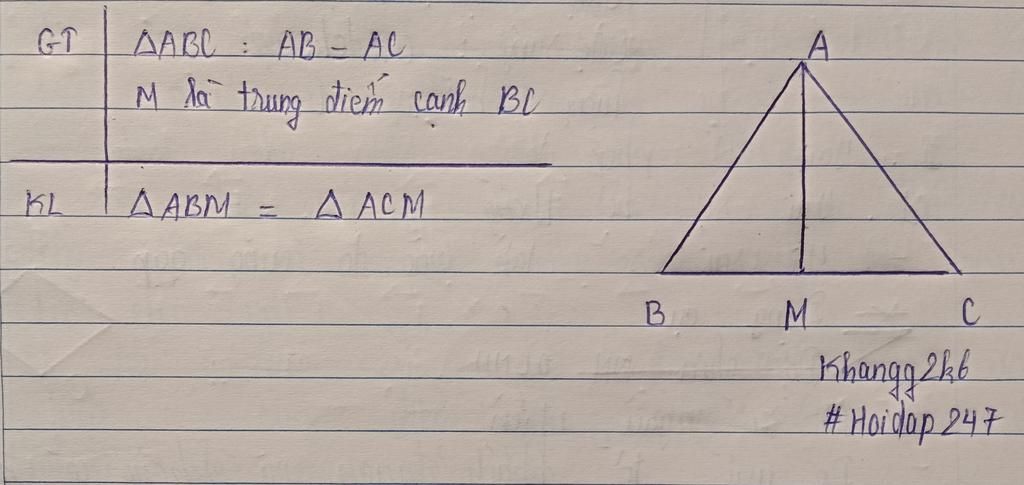 GT ΔABC : AB = AC
M là trung điểm cạnh BC
KL ΔABM = ΔACM
A
B M C
Khangg2k6
#Hoidap247